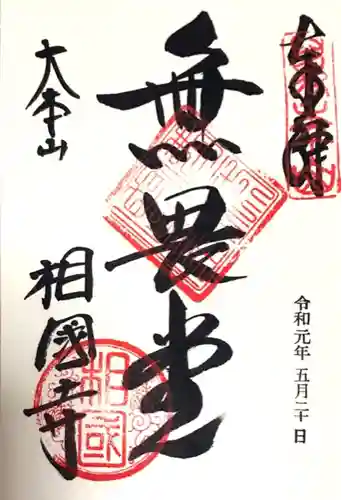 奉拝
令和元年 五月二十日
無畏堂
大本山
相國寺
相国